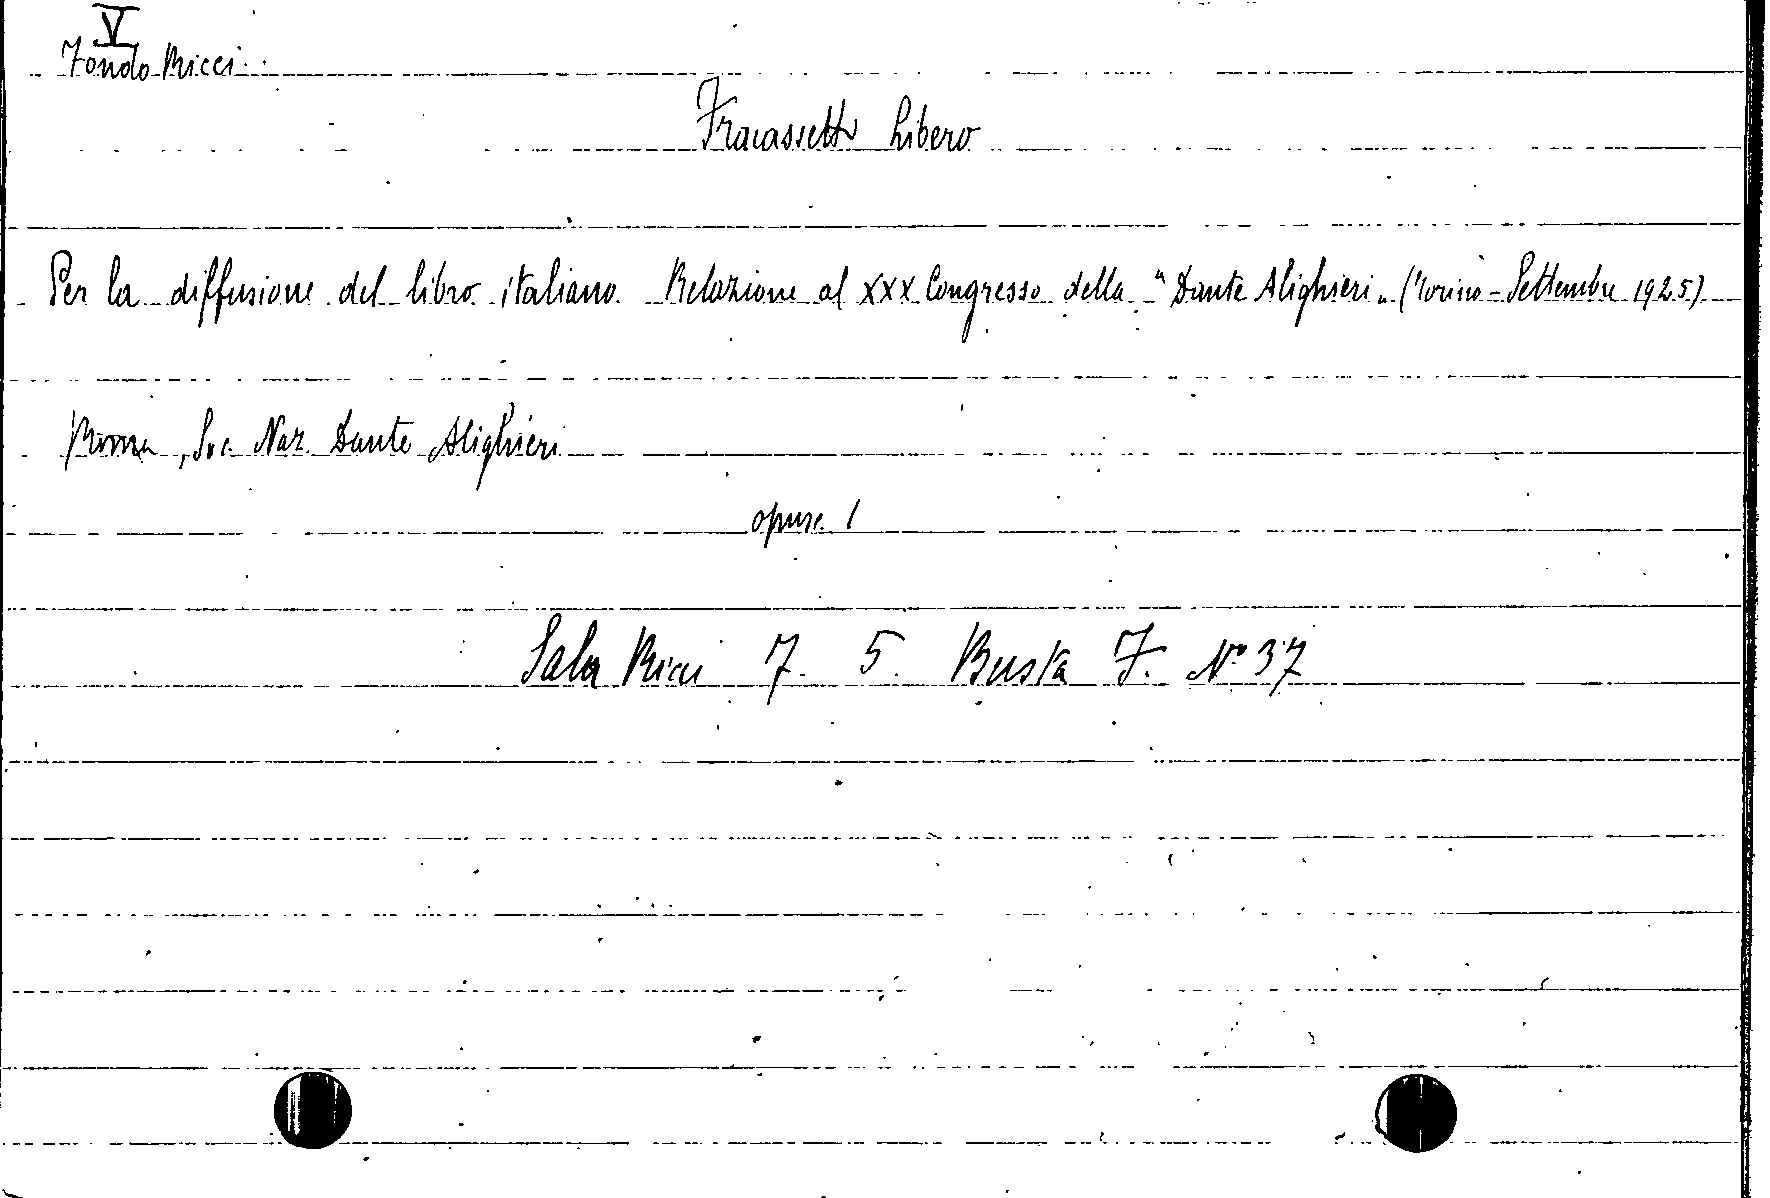 V
Fondo Ricci
Fracassetti Libero
Per la diffusione del libro italiano. Relazione al XXX Congresso della "Dante Alighieri" (Torino - Settembre 1925)
Roma, Soc. Naz. Dante Alighieri
opusc. 1
Sala Ricci 7. 5. Busta F. N° 37